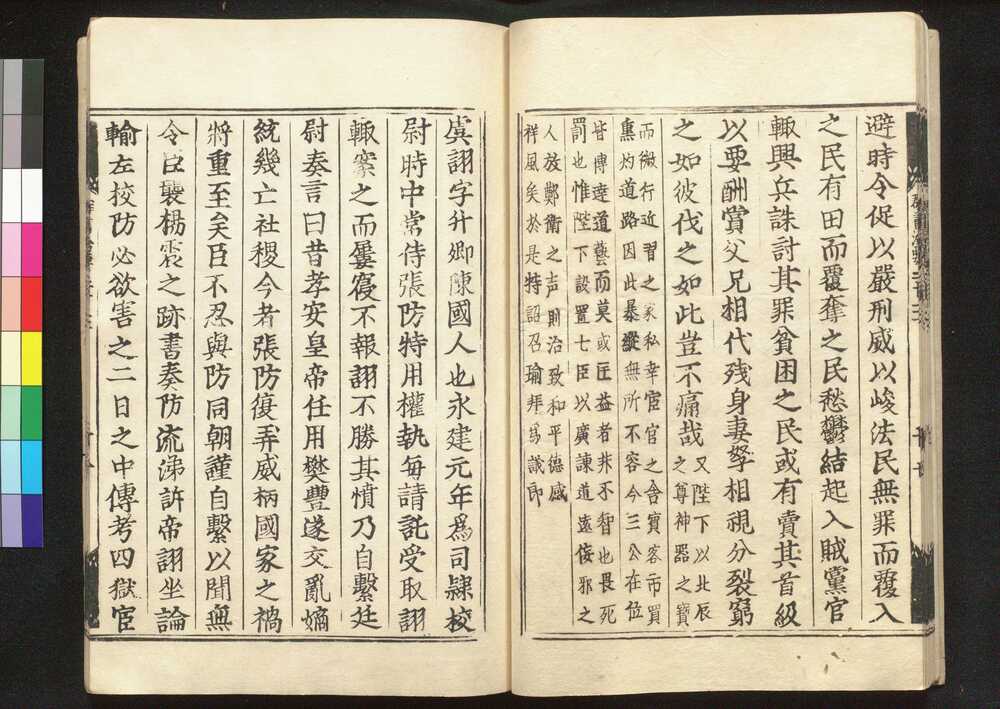 避時令促以嚴刑威以峻法民無罪而覆入
之民有田而覆奪之民愁鬱結起入賊黨官
輒興兵誅討其罪貧困之民或有賣其首級
以要酬賞父兄相代殘身妻孥相視分裂窮
之如彼伐之如此豈不痛哉
又陛下以北辰
之尊神器之寶
而微行近習之家私幸宦官之舍賓客市買
熏灼道路因此暴縱無所不容今三公在位
皆博達道藝而莫或匡益者非不智也畏死
罰也惟陛下設置七臣以廣諫道遠佞邪之
人放鄭衛之声則治致和平德感
祥風矣於是特詔召瑜拜為議郎
虞詡字升卿陳國人也永建元年爲司隷校
尉時中常侍張防特用權執每請託受取詡
輒案之而屢寢不報詡不勝其憤乃自繫廷
尉奏言曰昔孝安皇帝任用樊豐遂交亂嫡
統幾亡社稷今者張防復弄威柄國家之禍
將重至矣臣不忍與防同朝謹自繫以聞無
令臣襲楊震之跡書奏防流涕訴帝詡坐論
輸左校防必欲害之二日之中傳考四獄官